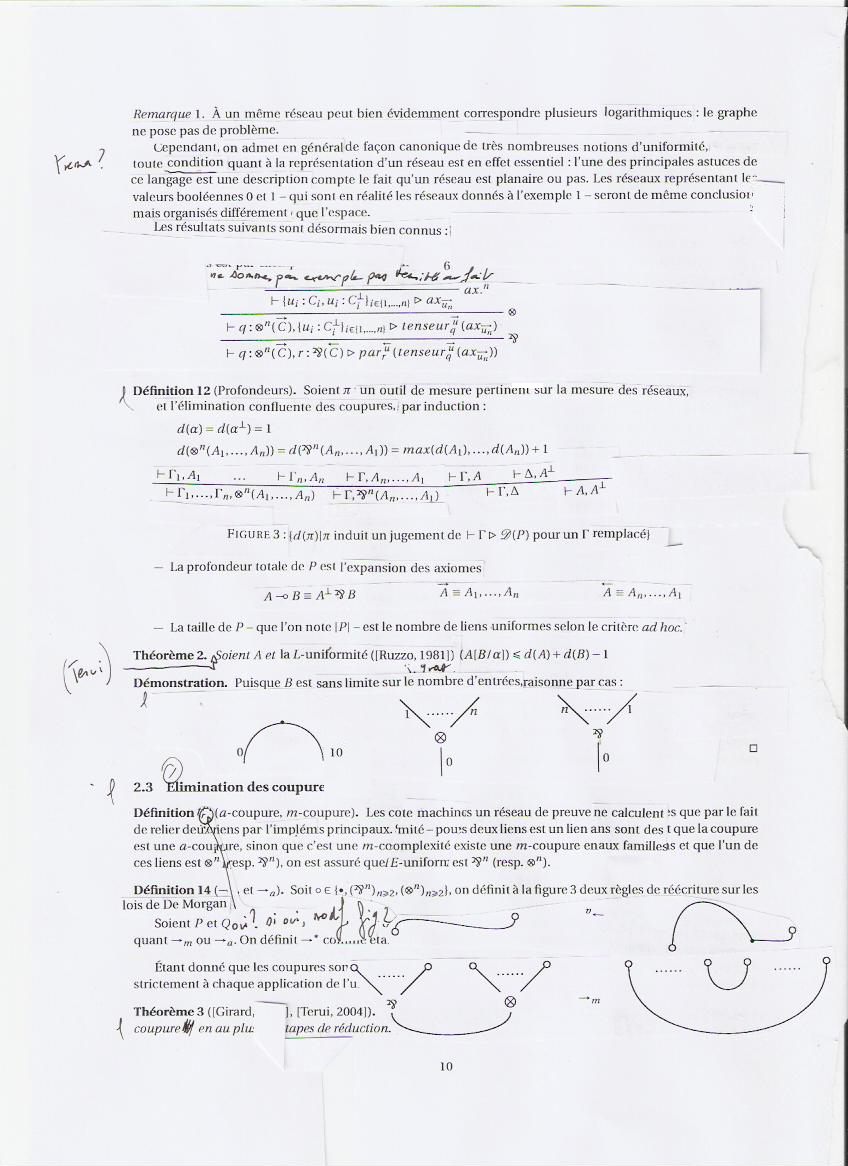 Remarque 1. À un même réseau peut bien évidemment correspondre plusieurs logarithmiques : le graphe
ne pose pas de problème.
Cependant, on admet en général de façon canonique de très nombreuses notions d'uniformité,
toute condition quant à la représentation d'un réseau est en effet essentiel : l'une des principales astuces de
ce langage est une description compte le fait qu'un réseau est planaire ou pas. Les réseaux représentant le
valeurs booléennes 0 et 1 – qui sont en réalité les réseaux donnés à l'exemple 1 – seront de même conclusion
mais organisés différement que l'espace.
Les résultats suivants sont désormais bien connus :
6
ne donne, par exemple pas
ax.ⁿ
⊢ {uᵢ : Cᵢ, uᵢ : Cᵢ^⊥}i∈{1,...,n} ▷ ax_uₙ
⊗
⊢ q : ⊗ⁿ(C⃗), {uᵢ : Cᵢ^⊥}i∈{1,...,n} ▷ tenseur_q^u⃗(ax_uₙ)
⅋
⊢ q : ⊗ⁿ(C⃗), r : ⅋(C⃖) ▷ par_r^u⃗(tenseur_q^u⃗(ax_uₙ))
Définition 12 (Profondeurs). Soient π un outil de mesure pertinent sur la mesure des réseaux,
et l'élimination confluente des coupures, par induction :
d(α) = d(α^⊥) = 1
d(⊗ⁿ(A₁,...,Aₙ)) = d(⅋ⁿ(Aₙ,...,A₁)) = max(d(A₁),...,d(Aₙ)) + 1
⊢ Γ₁, A₁ ... ⊢ Γₙ, Aₙ ⊢ Γ, Aₙ,...,A₁ ⊢ Γ, A ⊢ Δ, A^⊥
⊢ Γ₁,...,Γₙ, ⊗ⁿ(A₁,...,Aₙ) ⊢ Γ, ⅋ⁿ(Aₙ,...,A₁) ⊢ Γ, Δ ⊢ A, A^⊥
FIGURE 3 : {d(π)|π induit un jugement de ⊢ Γ ▷ 𝒟(P) pour un Γ remplacé}
– La profondeur totale de P est l'expansion des axiomes
A ⊸ B ≡ A^⊥ ⅋ B A⃗ ≡ A₁,...,Aₙ A⃖ ≡ Aₙ,...,A₁
– La taille de P – que l'on note |P| – est le nombre de liens uniformes selon le critère ad hoc.
(Terui)
Théorème 2. Soient A et la L-uniformité ([Ruzzo, 1981]) (A[B/α]) ⩽ d(A) + d(B) − 1
Démonstration. Puisque B est sans limite sur le nombre d'entrées, raisonne par cas :
1 ...... n n ...... 1
⊗ ⅋
0 10 0 0
□
2.3 Elimination des coupure
Définition (a-coupure, m-coupure). Les cote machines un réseau de preuve ne calculent es que par le fait
de relier deux liens par l'impléms principaux. 'mité – pours deux liens est un lien ans sont des t que la coupure
est une a-coupure, sinon que c'est une m-ccomplexité existe une m-coupure enaux familles is et que l'un de
ces liens est ⊗ⁿ (resp. ⅋ⁿ), on est assuré que E-uniform est ⅋ⁿ (resp. ⊗ⁿ).
Définition 14 (– , et →a). Soit ∘ ∈ {•, (⅋ⁿ)n⩾2, (⊗ⁿ)n⩾2}, on définit à la figure 3 deux règles de réécriture sur les
lois de De Morgan
Soient P et Q oui? si oui, modif fig 2
quant →m ou →a. On définit →* co
Étant donné que les coupures son
strictement à chaque application de l'u
...... ...... ...... ......
⅋ ⊗ →m
Théorème 3 ([Girard, ], [Terui, 2004]).
coupure en au plu tapes de réduction.
10